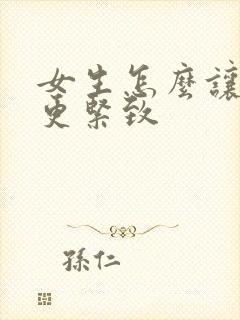 女生怎麽讓
更緊致
孫仁